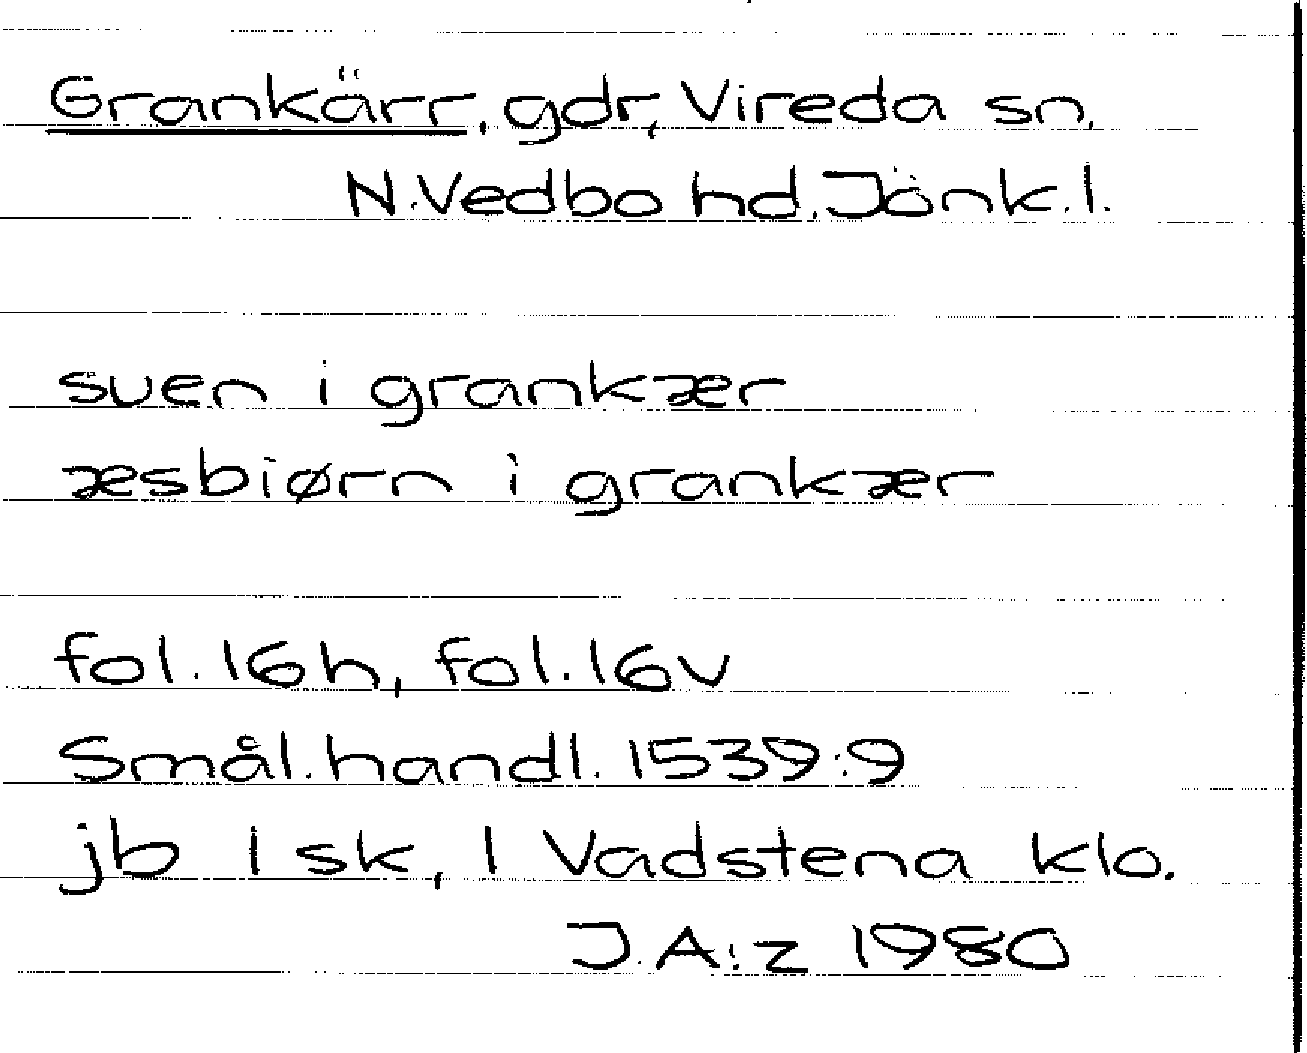 Grankärr, gdr, Vireda sn.
N.Vedbo hd. Jönk.l.
suen i grankær
æsbiørn i grankær
fol. 16h, fol. 16v
Smål. handl. 1539:9
jb 1 sk, 1 Vadstena klo.
J.A:z 1980